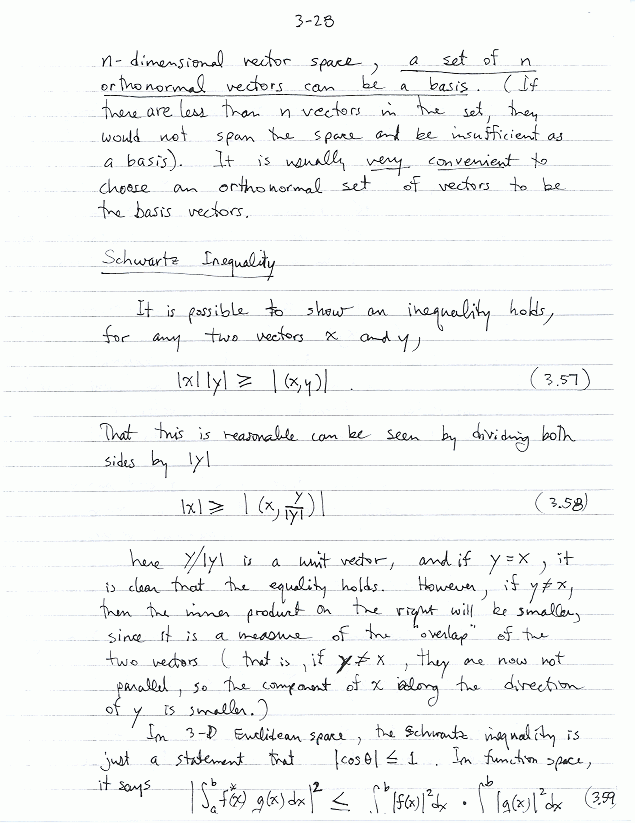 3-28
n-dimensional vector space, a set of n
orthonormal vectors can be a basis. (If
there are less than n vectors in the set, they
would not span the space and be insufficient as
a basis). It is usually very convenient to
choose an orthonormal set of vectors to be
the basis vectors.
Schwartz Inequality
It is possible to show an inequality holds,
for any two vectors x and y,
|x| |y| ≥ |(x,y)| . (3.57)
That this is reasonable can be seen by dividing both
sides by |y|
|x| ≥ |(x, y/|y|)| (3.58)
here y/|y| is a unit vector, and if y = x, it
is clear that the equality holds. However, if y ≠ x,
then the inner product on the right will be smaller,
since it is a measure of the "overlap" of the
two vectors (that is, if y ≠ x, they are now not
parallel, so the component of x along the direction
of y is smaller.)
In 3-D Euclidean space, the Schwartz inequality is
just a statement that |cos θ| ≤ 1. In function space,
it says |∫ₐᵇ f*(x) g(x) dx|² ≤ ∫ᵇ |f(x)|² dx · ∫ᵇ |g(x)|² dx (3.59